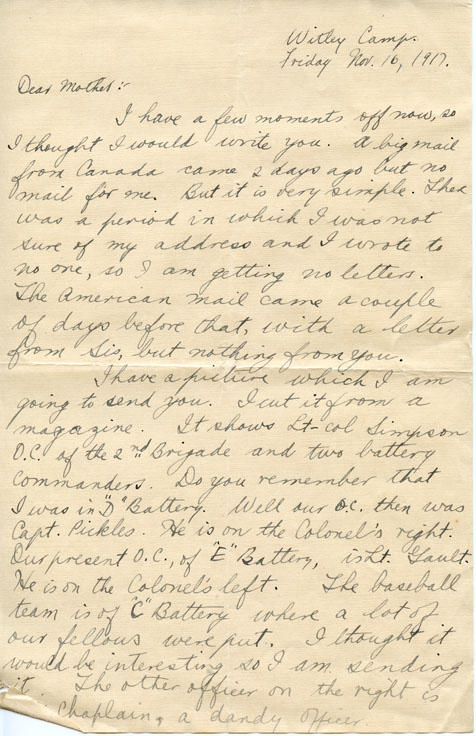 Witley Camp.
Friday Nov. 16, 1917.
Dear Mother:-
I have a few moments off now, so
I thought I would write you. A big mail
from Canada came 2 days ago but no
mail for me. But it is very simple. There
was a period in which I was not
sure of my address and I wrote to
no one, so I am getting no letters.
The American mail came a couple
of days before that, with a letter
from Sis, but nothing from you.
I have a picture which I am
going to send you. I cut it from a
magazine. It shows Lt-col Simpson
O.C. of the 2nd Brigade and two battery
commanders. Do you remember that
I was in "D" Battery. Well our O.C. then was
Capt. Pickles. He is on the Colonel's right.
Our present O.C., of "E" Battery, is Lt. Gault.
He is on the Colonel's left. The baseball
team is of "C" Battery where a lot of
our fellows were put. I thought it
would be interesting so I am sending
it. The other officer on the right is
chaplain, a dandy officer.